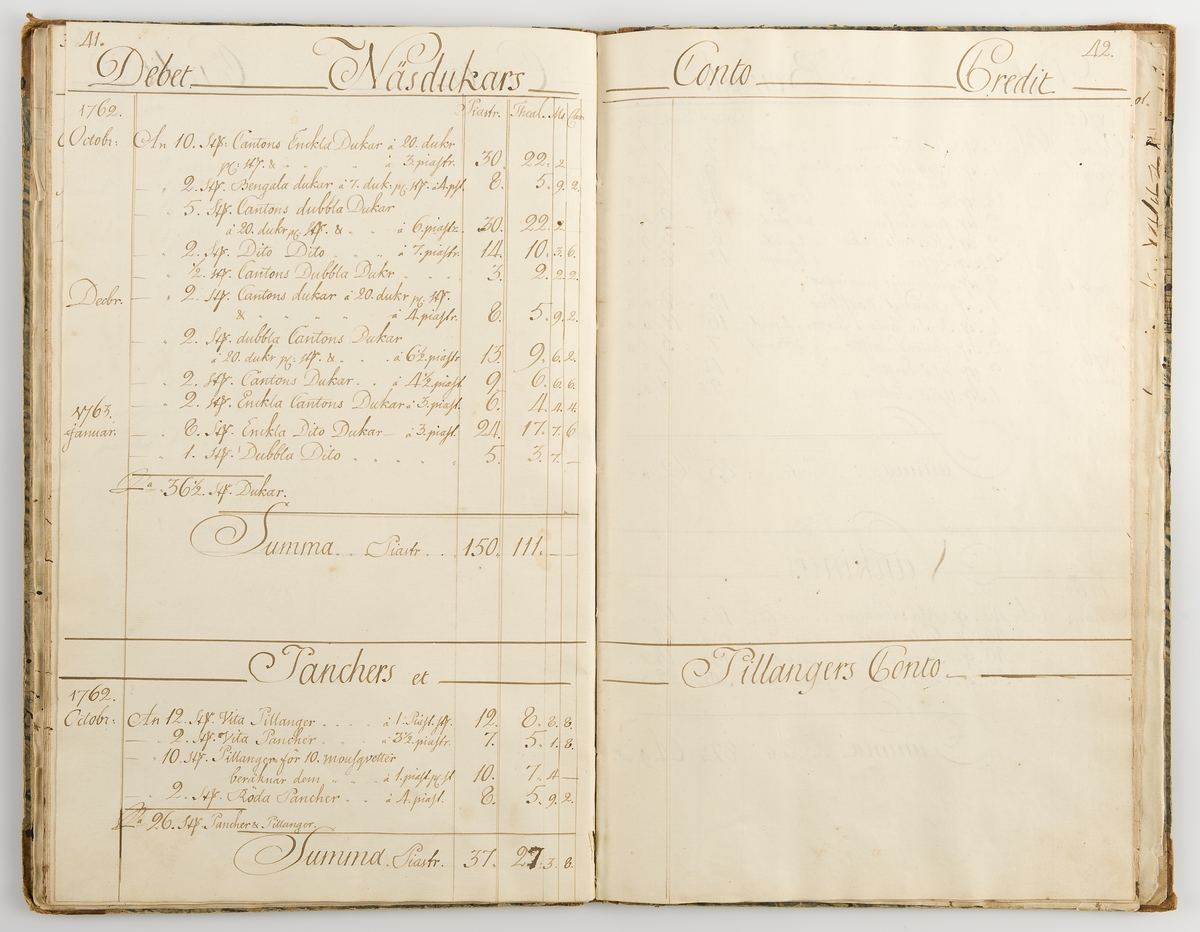 41.
Debet Näsdukars
1762. Piastr. Theal. Mt
Octobr: An 10. Stk: Cantons Enckla Dukar à 20. dukr
pr: Stk. & à 3. piastr. 30. 22. 2
2. Stk. Bengala dukar à 7. duk: pr. Stk. à 4. pst. 8. 5. 9. 2.
5. Stk. Cantons dubbla Dukar
à 20. dukr pr. Stk. & à 6. piastr. 30. 22. 2
2. Stk. Dito Dito à 7. piastr. 14. 10. 3. 6.
1/2. Stk. Cantons Dubbla Dukr 3. 2. 2. 2.
Decbr. 2. Stk. Cantons dukar à 20. dukr pr. Stk.
& à 4. piastr. 8. 5. 9. 2.
2. Stk. dubbla Cantons Dukar
à 20. dukr pr: Stk. & à 6 1/2. piastr. 13. 9. 6. 2.
2. Stk. Cantons Dukar à 4 1/2. piast. 9. 6. 6. 6.
1763. 2. Stk. Enckla Cantons Dukar à 3. piast. 6. 4. 4. 4.
Januar. 8. Stk. Enckla Dito Dukar à 3. piast. 24. 17. 7. 6
1. Stk. Dubbla Dito 5. 3. 7. —
36 1/2. Stk. Dukar.
Summa Piastr 150. 111. — —
Panchers et
1762.
Octobr: An 12. Stk. Vita Pillanger à 1. Piast. Stk. 12. 8. 8. 8.
2. Stk. Vita Pancher à 3 1/2. piastr. 7. 5. 1. 8.
10. Stk. Pillanger för 10. mousqvetter
beräknar dem à 1. piast. pr. st 10. 7. 4 —
2. Stk. Röda Pancher à 4. piast. 8. 5. 9. 2.
26. Stk. Pancher & Pillanger.
Summa Piastr. 37. 27. 3. 8.
42.
Conto Credit
Pillangers Conto